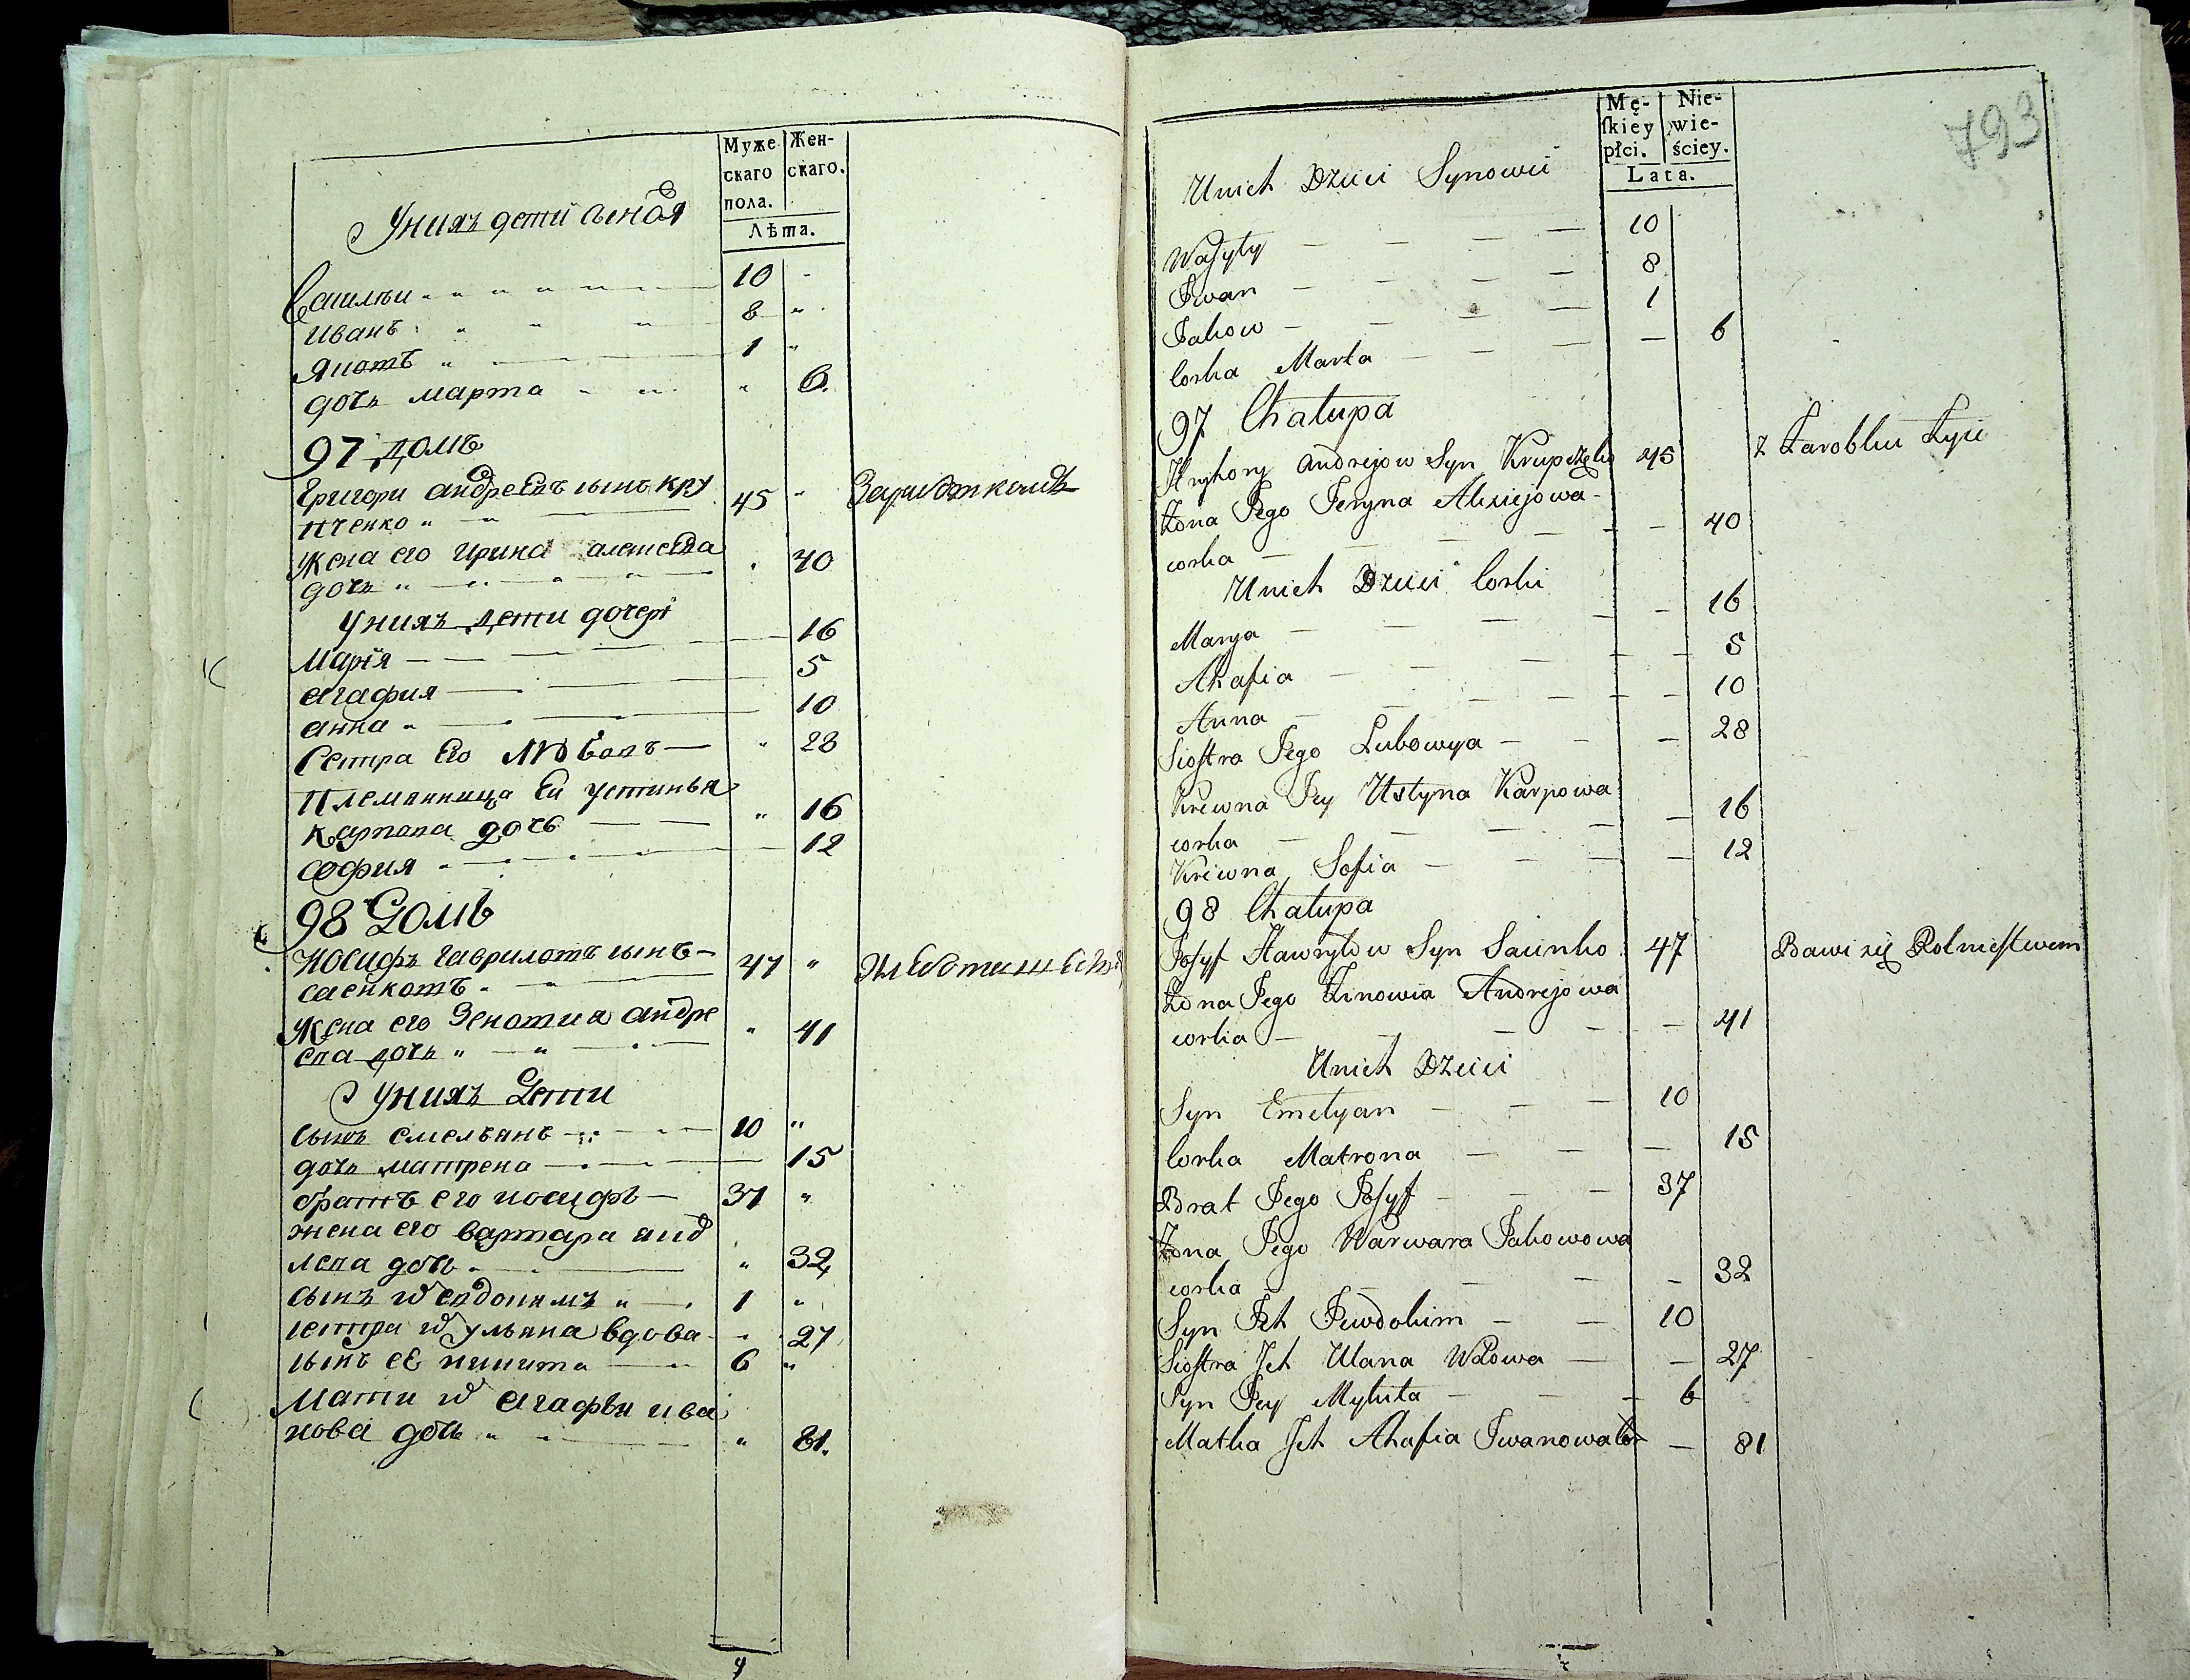 Муже
скаго
пола.
Жен-
скаго.
Лѣта.
У нихъ дети
Василъи 10
Иванъ 8 "
1 "
дочъ марта " 6.
97 домъ
Григори андреевъ сынъ кру
пченко " 45 "
Жена его Ирина алексеева
дочъ " 40
У нихъ дети дочери
Марїя 16
агафия 5
анна 10
Сестра Его Любовъ " 28
Племянница Ей устинья
карпова дочъ " 16
софия 12
98 Домъ
Иосифъ гавриловъ сынъ
47 "
Жена его Зеновия андре
ева дочъ " " 41
У нихъ Дети
сынъ емелъянъ 10 "
дочъ матрена 15
братъ его иосифъ 37 "
жена его варвара
дочь " 32
сынъ 1 "
сестра ульяна вдова 27
сынъ ее никита 6 "
Мати агафья ива
нова дочь " " 81.
4
793
Mę-
ſkiey
płci.
Nie-
wie-
ściey.
Lata.
Unich Dzieci Synowie
Waſyly 10
Iwan 8
Jakow 1
Corka Marta 6
97 Chałupa
Hryhory Andrejow Syn 45 z Zarobku Żyie
Żona Jego Jeryna Alexiejowa
corka 40
Unich Dzieci Corki
Marya 16
Ahafia 5
Anna 10
Siostra Jego Lubowya 28
Krewna Jey Ustyna Karpowa
corka 16
Krewna Sofia 12
98 Chałupa
Joſyf Hawryłow Syn Saienko 47 Bawi się Rolnictwem
Żona Jego Zinowia Andrejowa
corka 41
Unich Dzieci
Syn Emelyan 10
Corka Matrona 15
Brat Jego Joſyf 37
Żona Jego Warwara Jakowowa
corka 32
Syn Ich Jewdokim 10
Siostra Ich Ulana Wdowa 27
Syn Jey Mykita 6
Matka Ich Ahafia Iwanowa Cor 81